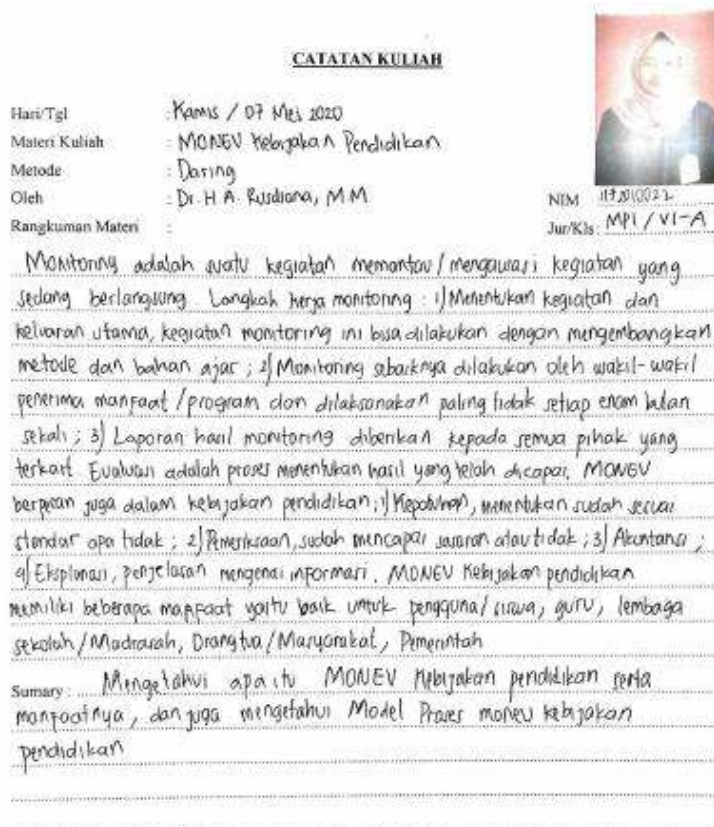 CATATAN KULIAH
Hari/Tgl : Kamis / 07 Mei 2020
Materi Kuliah : MONEV Kebijakan Pendidikan
Metode : Daring
Oleh : Dr. H. A. Rusdiana, M M
NIM 1172010022
Rangkuman Materi :
Jur/Kls : MPI / VI-A
Monitoring adalah suatu kegiatan memantau / mengawasi kegiatan yang
sedang berlangsung. Langkah kerja monitoring : 1) Menentukan kegiatan dan
keluaran utama, kegiatan monitoring ini bisa dilakukan dengan mengembangkan
metode dan bahan ajar ; 2) Monitoring sebaiknya dilakukan oleh wakil-wakil
penerima manfaat / program dan dilaksanakan paling tidak setiap enam bulan
sekali ; 3) Laporan hasil monitoring diberikan kepada semua pihak yang
terkait. Evaluasi adalah proses menentukan hasil yang telah dicapai. MONEV
berperan juga dalam kebijakan pendidikan ; 1) Kepatuhan, menentukan sudah sesuai
standar apa tidak ; 2) Pemeriksaan, sudah mencapai sasaran atau tidak ; 3) Akuntansi ;
4) Eksplanasi, penjelasan mengenai informasi. MONEV Kebijakan pendidikan
memiliki beberapa manfaat yaitu baik untuk pengguna / siswa, guru, lembaga
sekolah / Madrasah, Orangtua / Masyarakat, Pemerintah
Sumary : Mengetahui apa itu MONEV Kebijakan pendidikan serta
manfaatnya, dan juga mengetahui Model Proses monev kebijakan
pendidikan